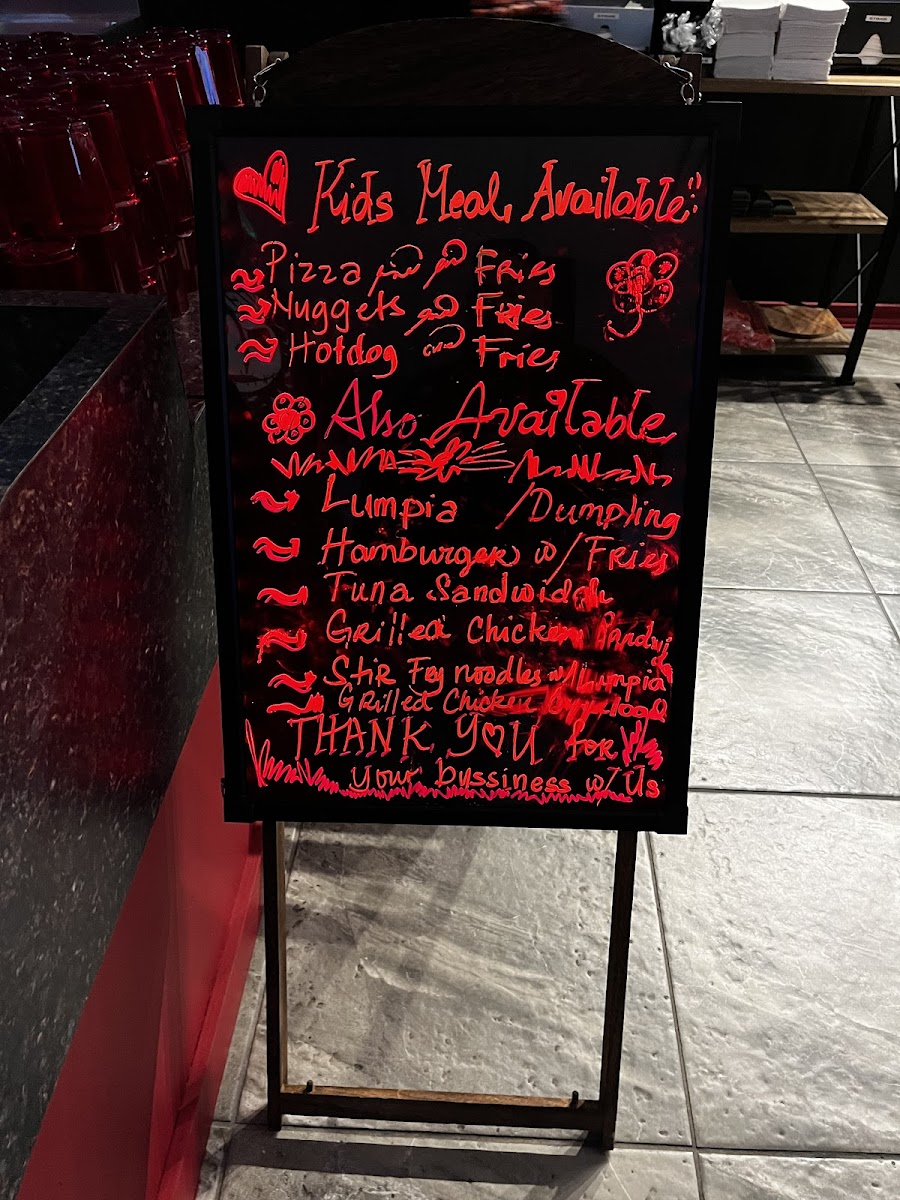 Kids Meal Available
Pizza Fries
Nuggets Fries
Hotdog Fries
Also Available
Lumpia /Dumpling
Hamburger w/ Fries
Tuna Sandwich
Grilled Chicken
Stir Fry noodles w/Lumpia
Grilled Chicken
THANK YOU for
your byssiness w/ Us